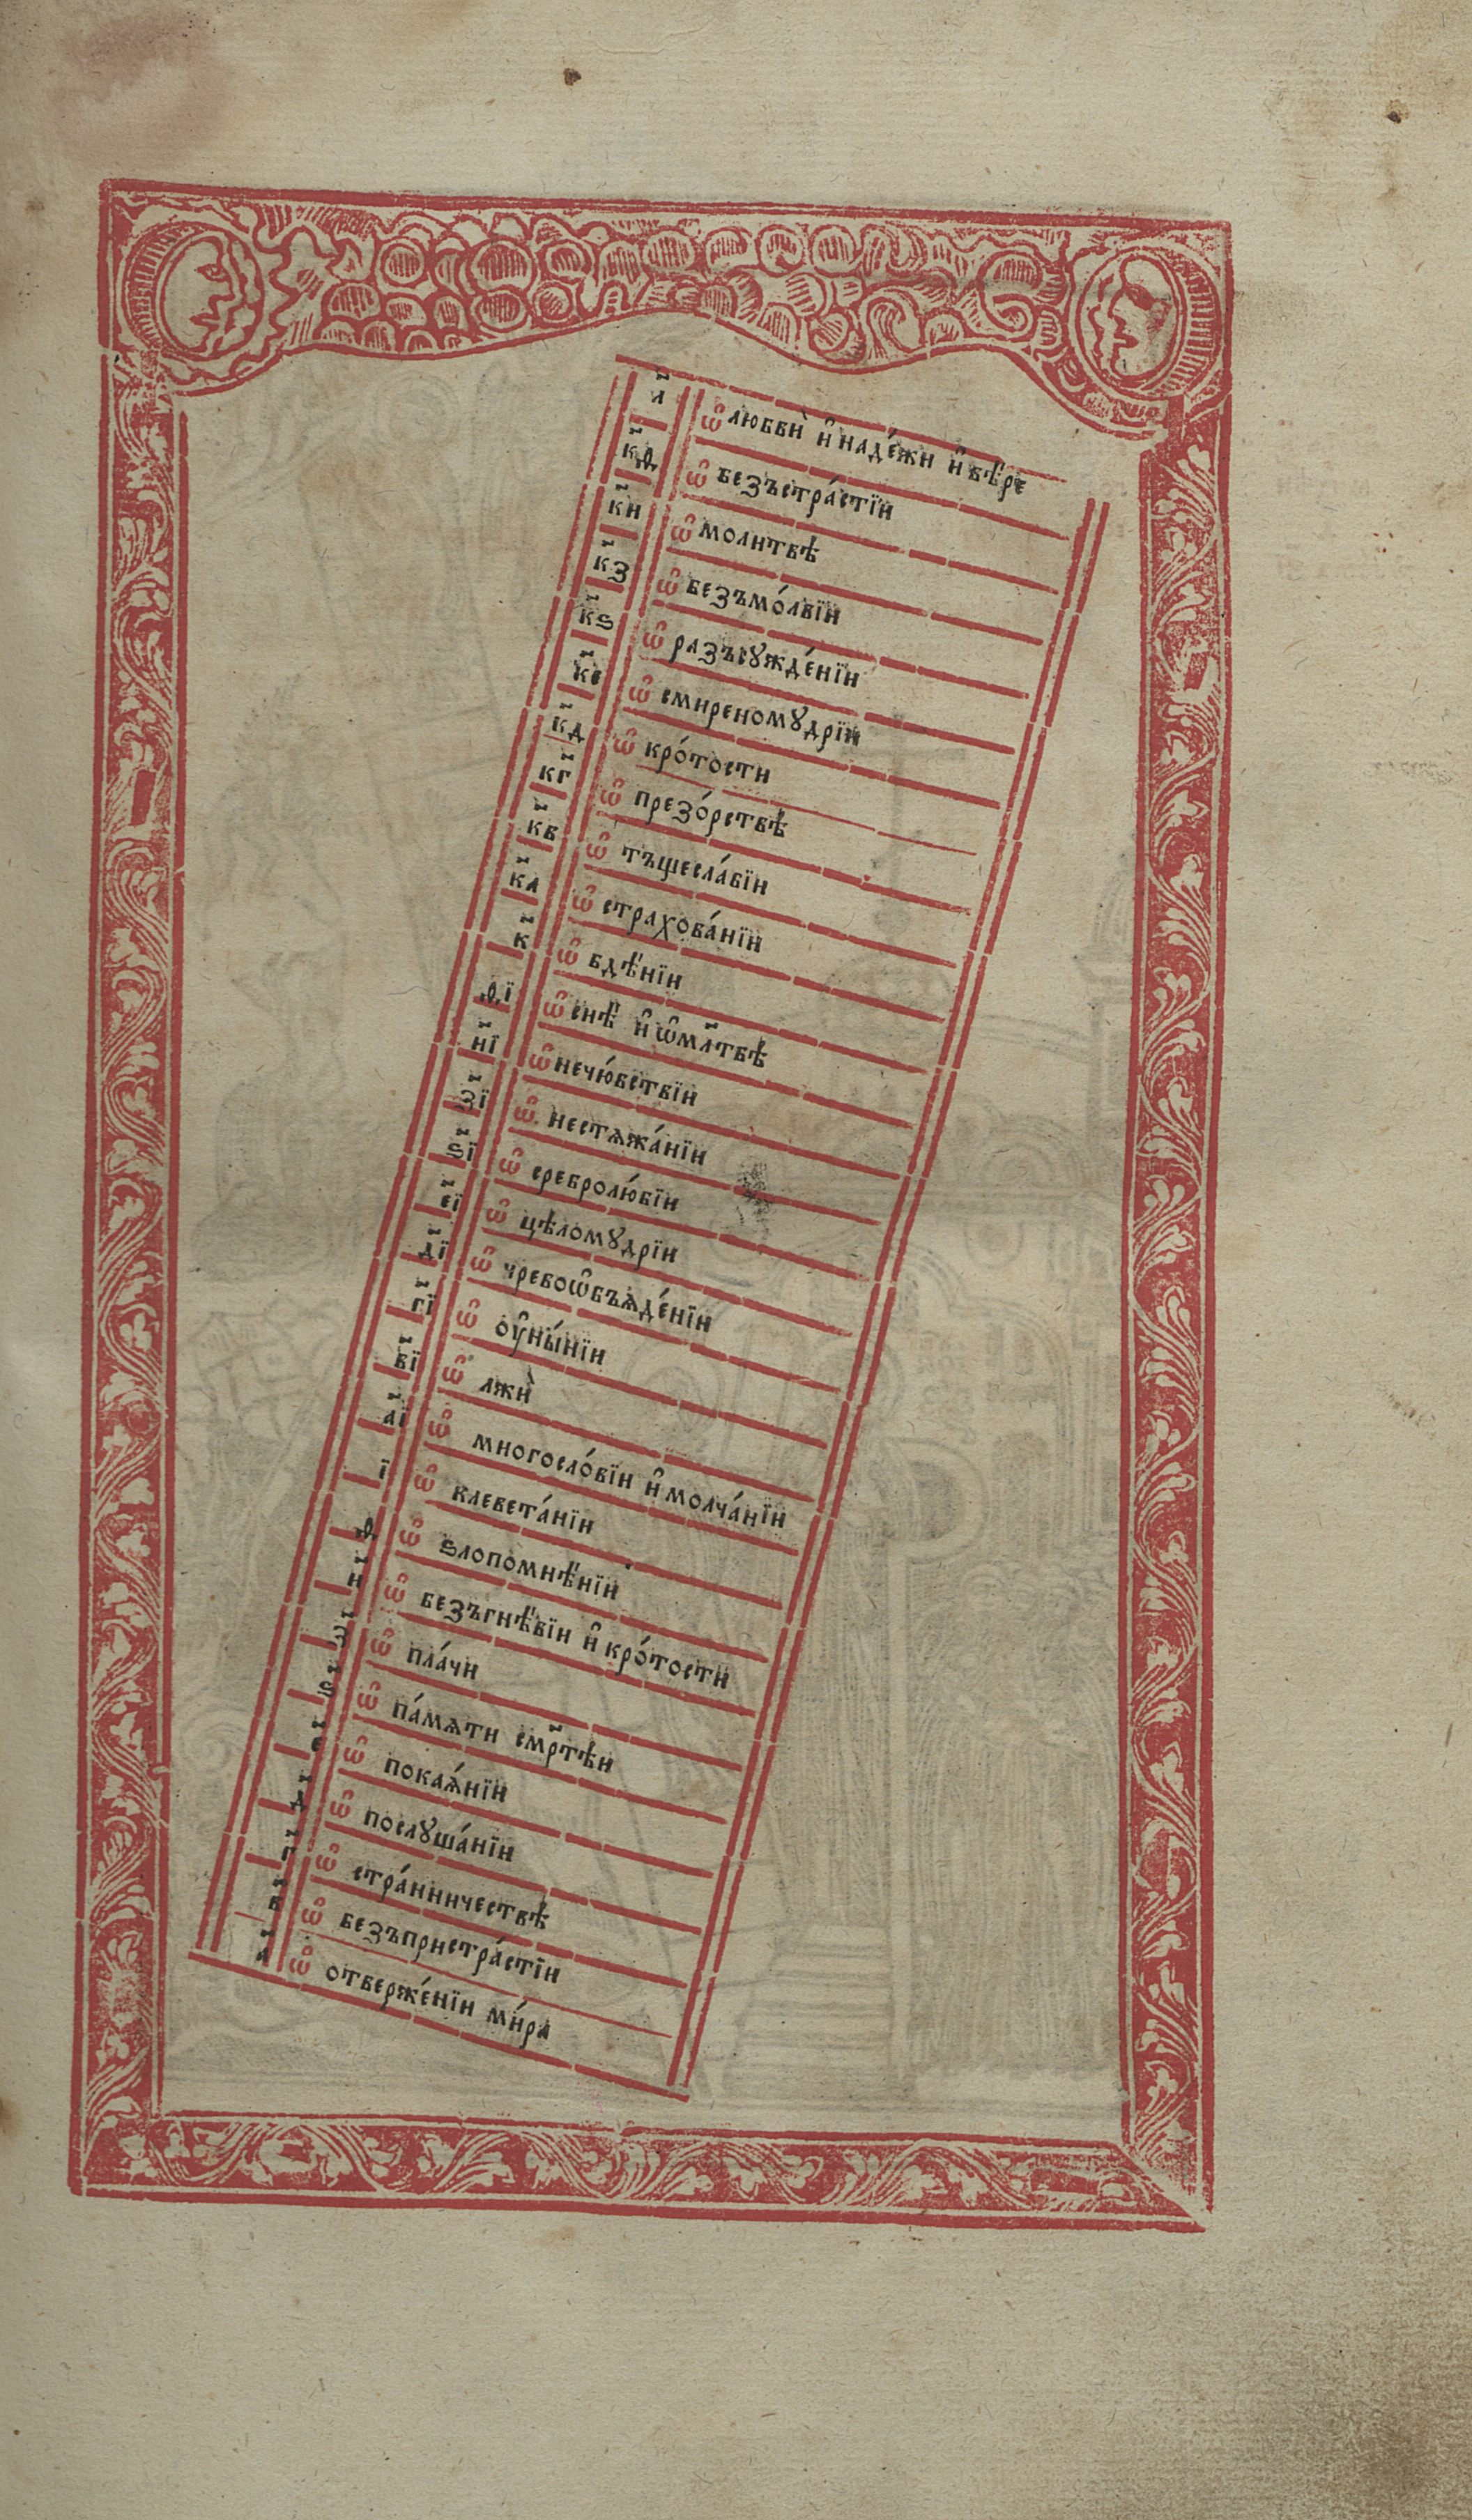 л҃ ѡ҆ любвѝ и҆ наде́жи и҆ вѣ́ре
к҃ѳ ѡ҆ безъстра́стїи
к҃и ѡ҆ молитвѣ
к҃з ѡ҆ безъмо́лвїи
к҃ѕ ѡ҆ разъсꙋжде́нїи
к҃е ѡ҆ смиреномꙋдрїи
к҃д ѡ҆ кро́тости
к҃г ѡ҆ презо́рствѣ
к҃в ѡ҆ тъщесла́вїи
к҃а ѡ҆ страхова́нїи
к҃ ѡ҆ вдѣ́нїи
ѳ҃ї ѡ҆ снѣ̀ и҆ ѡ҆ мл҃твѣ
и҃ї ѡ҆ нечю́вствїи
з҃ї ѡ҆ нестѧжа́нїи
ѕ҃ї ѡ҆ сребролю́бїи
є҃ї ѡ҆ цѣломꙋдрїи
д҃ї ѡ҆ чревоѡ҆бъѧде́нїи
г҃ї ѡ҆ оу҆ны́нїи
в҃ї ѡ҆ лжѝ
а҃ї ѡ҆ многосло́вїи и҆ молча́нїи
ї ѡ҆ клевета́нїи
ѳ҃ ѡ҆ ѕлопомнѣ́нїи
и҃ ѡ҆ безъгнѣ́вїи и҆ кро́тости
з҃ ѡ҆ пла́чи
ѕ҃ ѡ҆ па́мѧти смр҃тѣи
є҃ ѡ҆ покаѧ́нїи
д҃ ѡ҆ послꙋша́нїи
г҃ ѡ҆ стра́нничествѣ
в҃ ѡ҆ безъпристра́стїи
а҃ ѡ҆ отверже́нїи ми́ра